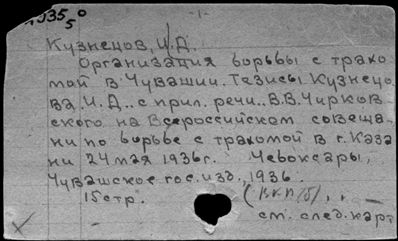 1935
5
- 1 -
Кузнецов, И.Д.
Организация борьбы с трахо-
мой в Чувашии. Тезисы Кузнецо-
ва, И.Д.. с прил. речи.. В.В. Чирков-
ского на Всероссийском совеща-
ни по борьбе с трахомой в г. Каза
ни 24 мая 1936 г. Чебоксары,
Чувашское гос. изд., 1936.
15 стр. (ВКП(б),
см. след. карт